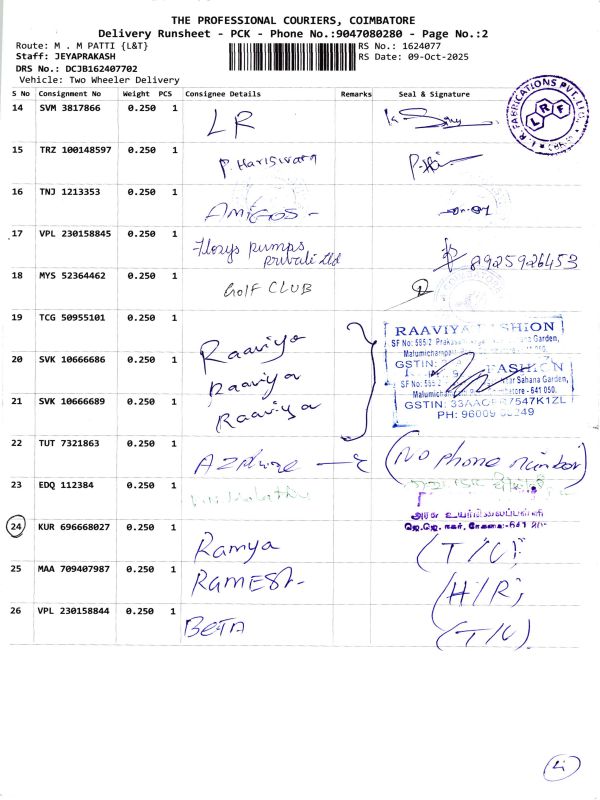 THE PROFESSIONAL COURIERS, COIMBATORE
Delivery Runsheet - PCK - Phone No.:9047080280 - Page No.:2
Route: M . M PATTI {L&T} RS No.: 1624077
Staff: JEYAPRAKASH RS Date: 09-Oct-2025
DRS No.: DCJB162407702
Vehicle: Two Wheeler Delivery
S No Consignment No Weight PCS Consignee Details Remarks Seal & Signature
14 SVM 3817866 0.250 1 LR
FABRICATIONS PVT.LTD.
LRF
15 TRZ 100148597 0.250 1 P. Hariswara
16 TNJ 1213353 0.250 1 AMIGOS -
17 VPL 230158845 0.250 1 Florys pumps
private Ltd 8925926453
18 MYS 52364462 0.250 1 Golf CLUB
19 TCG 50955101 0.250 1 Raaviya
RAAVIYA FASHION
20 SVK 10666686 0.250 1 Raaviya
FASHION
Sahana Garden,
641 050.
21 SVK 10666689 0.250 1 Raaviya
GSTIN: 33AACER7547K1ZL
22 TUT 7321863 0.250 1 (No phone number)
23 EDQ 112384 0.250 1
அரசு உயர்நிலைப்பள்ளி
24 KUR 696668027 0.250 1 Ramya (T/C)
25 MAA 709407987 0.250 1 RAMESH (H/R)
26 VPL 230158844 0.250 1 BETA (T/C)